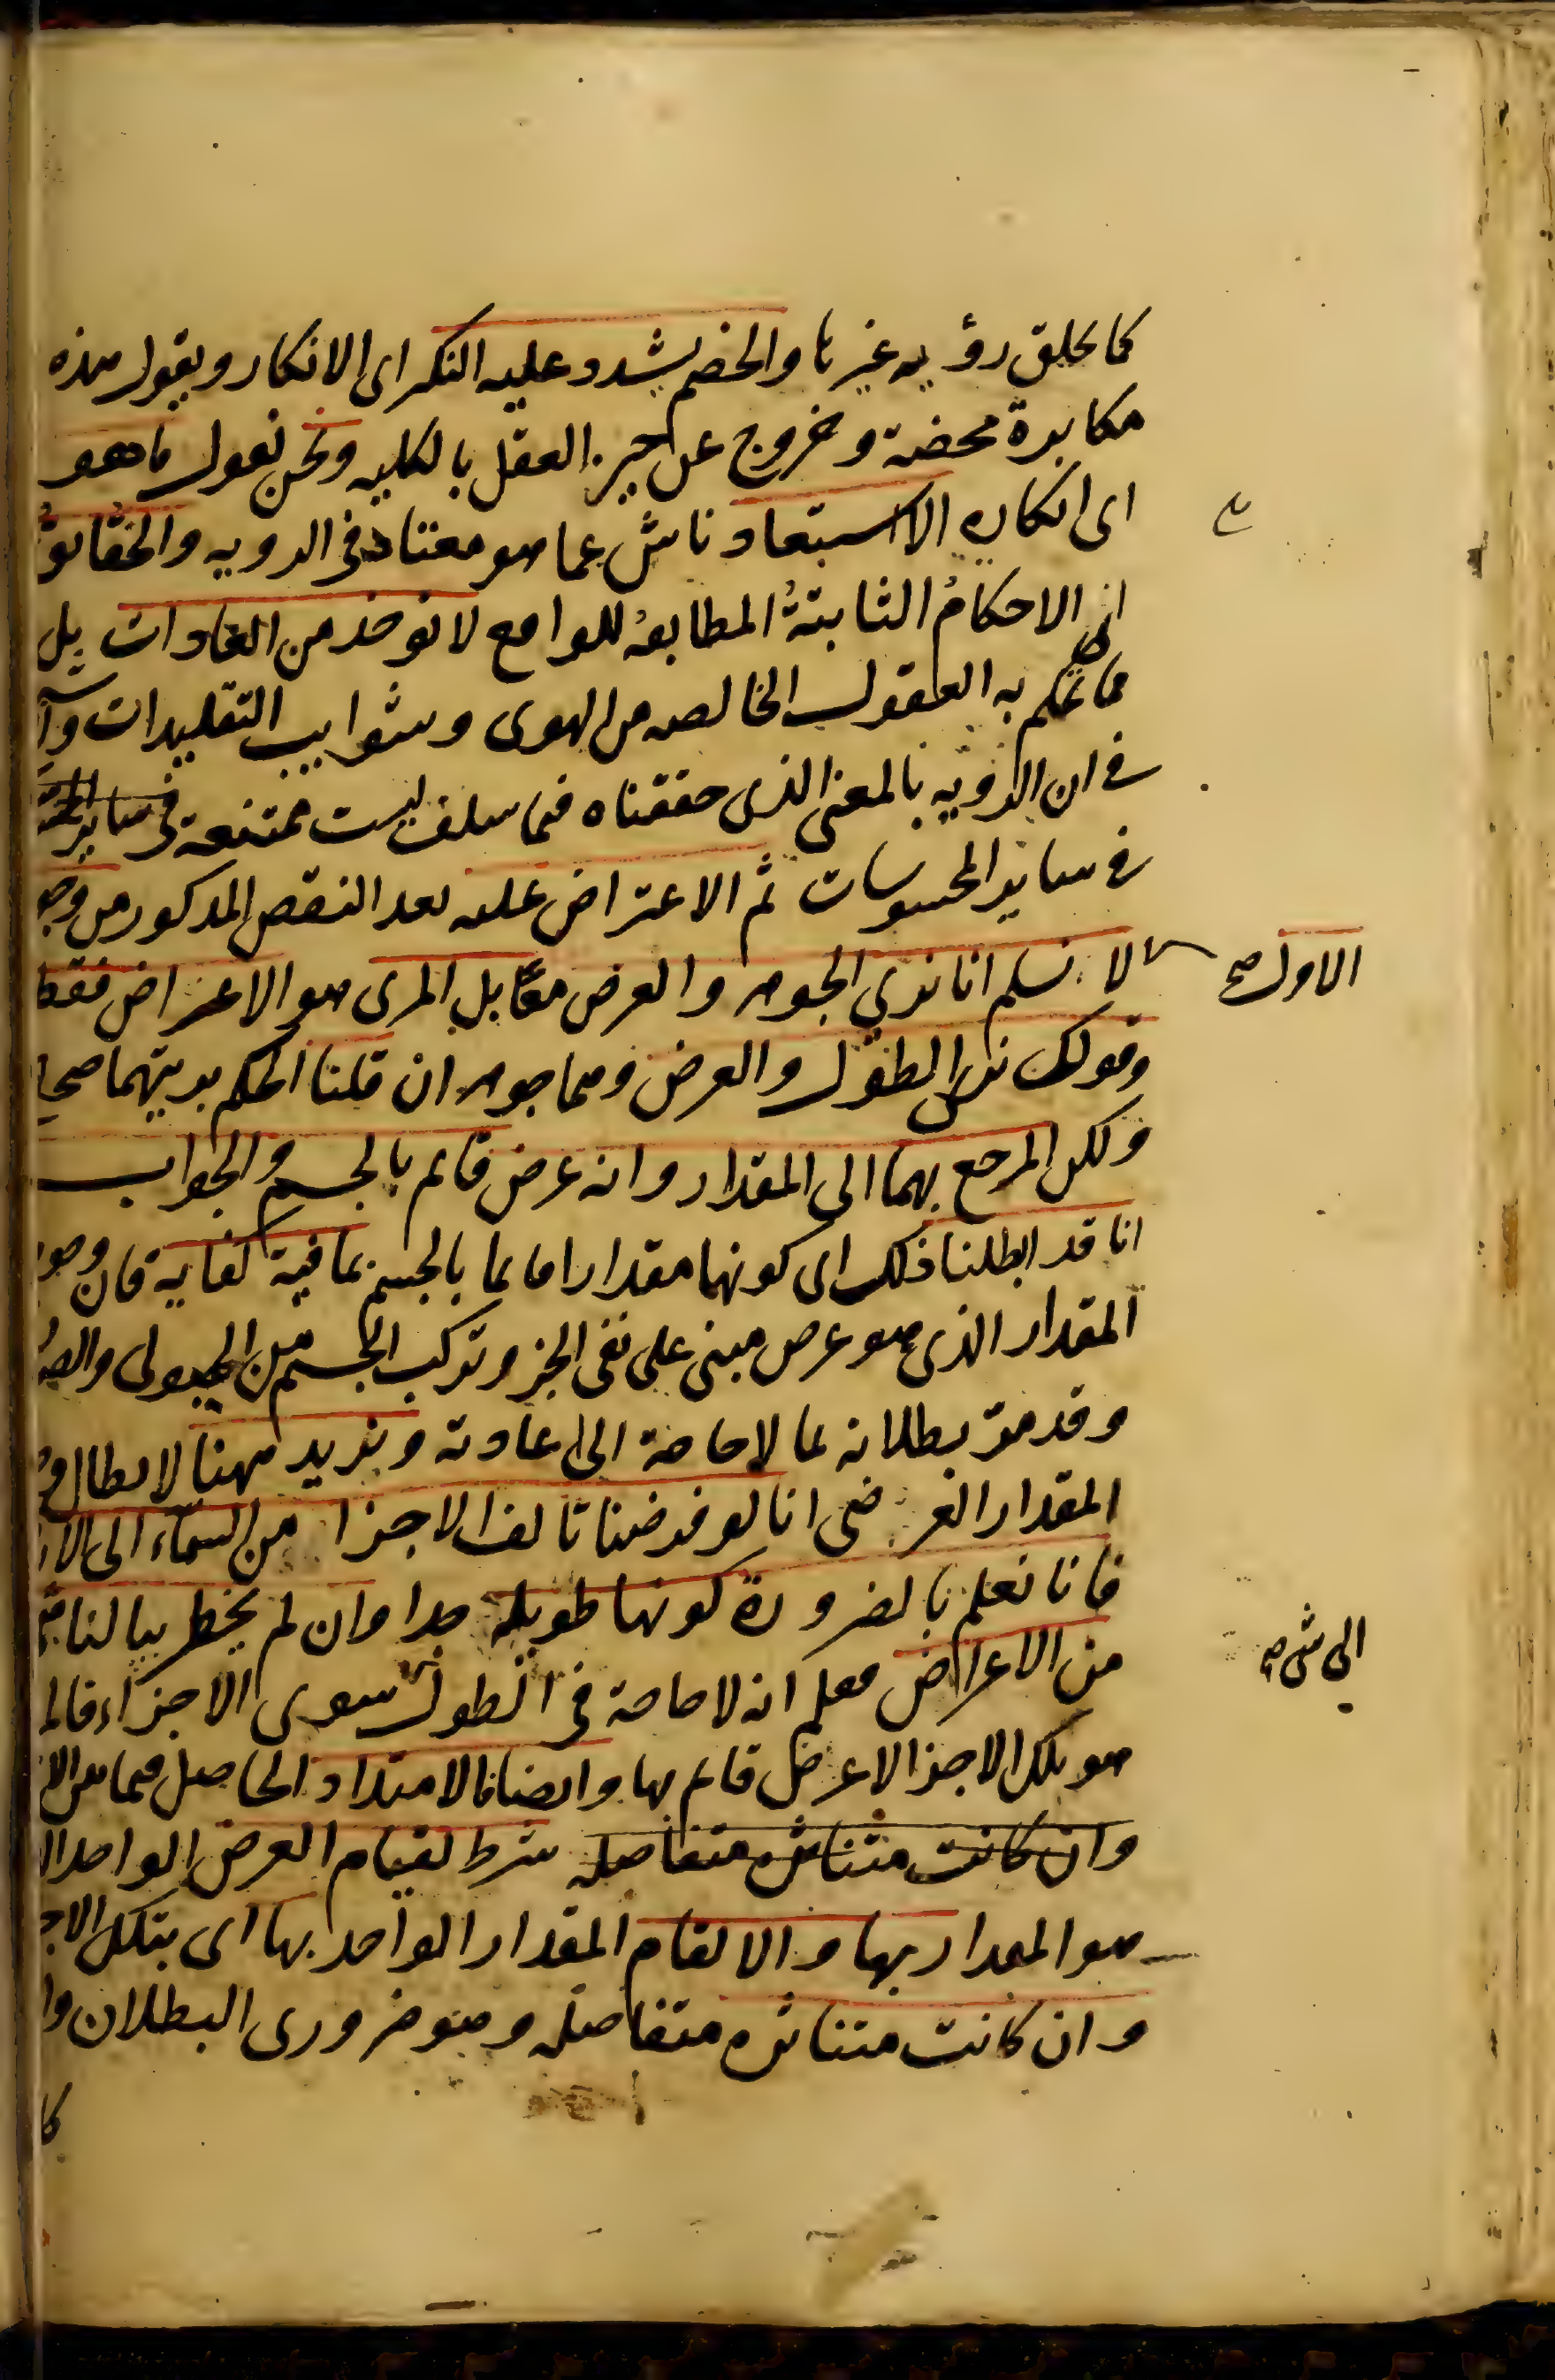 كما يخلق رؤيه غيرها والخصم يشدد عليه النكير اى الانكار ويقول هذه
مكابرة محضة وخروج عن حيز العقل بالكليه ونحن نقول ما هو
اى انكاره الا استبعاد ناش عما هو معتاد فى الرويه والحقائق
اى الاحكام الثابتة المطابقه للواقع لا توخذ من العادات بل
مما تحكم به العقول الخالصه من الهوى وشوايب التقليدات
فى ان الرؤيه بالمعنى الذى حققناه فيما سلف ليست ممتنعة فى ساير
فى ساير المحسوسات ثم الاعتراض عليه بعد النقض المذكور من وجوه
الاول صح
لا نسلم انا نرى الجوهر والعرض معا بل المرى هو الاعراض فقط
وقولك نرى الطول والعرض وهما جوهر ان قلنا الحكم برويتهما صحيح
ولكن المرجع بهما الى المقدار وانه عرض قايم بالجسم والجواب
انا قد ابطلنا ذلك اى كونهما مقدارا قايما بالجسم بما فيه كفايه فان وجود
المقدار الذى هو عرض مبنى على نفى الجز وتركب الجسم من الهيولى والصورة
وقد مر بطلانه بما لا حاجة الى اعادته ونزيد ههنا لابطال
المقدار العرضى انا لو فرضنا تالف الاجزا من السماء الى الارض
فانا نعلم بالضرورة كونها طويله جدا وان لم يخطر ببالنا شى
من الاعراض فعلم انه لا حاجة فى الطول الى شى صح سوى الاجزاء فالمرى
هو تلك الاجزا لا عرض قايم بها وايضا فالامتداد الحاصل فيما بين الاجزا
وان كانت متناثره متفاصله شرط لقيام العرض الواحد الذى
هو المقدار بها والا لقام المقدار الواحد بها اى بتلك الاجزا
وان كانت متناثره متفاصله وهو ضرورى البطلان واذا
كا